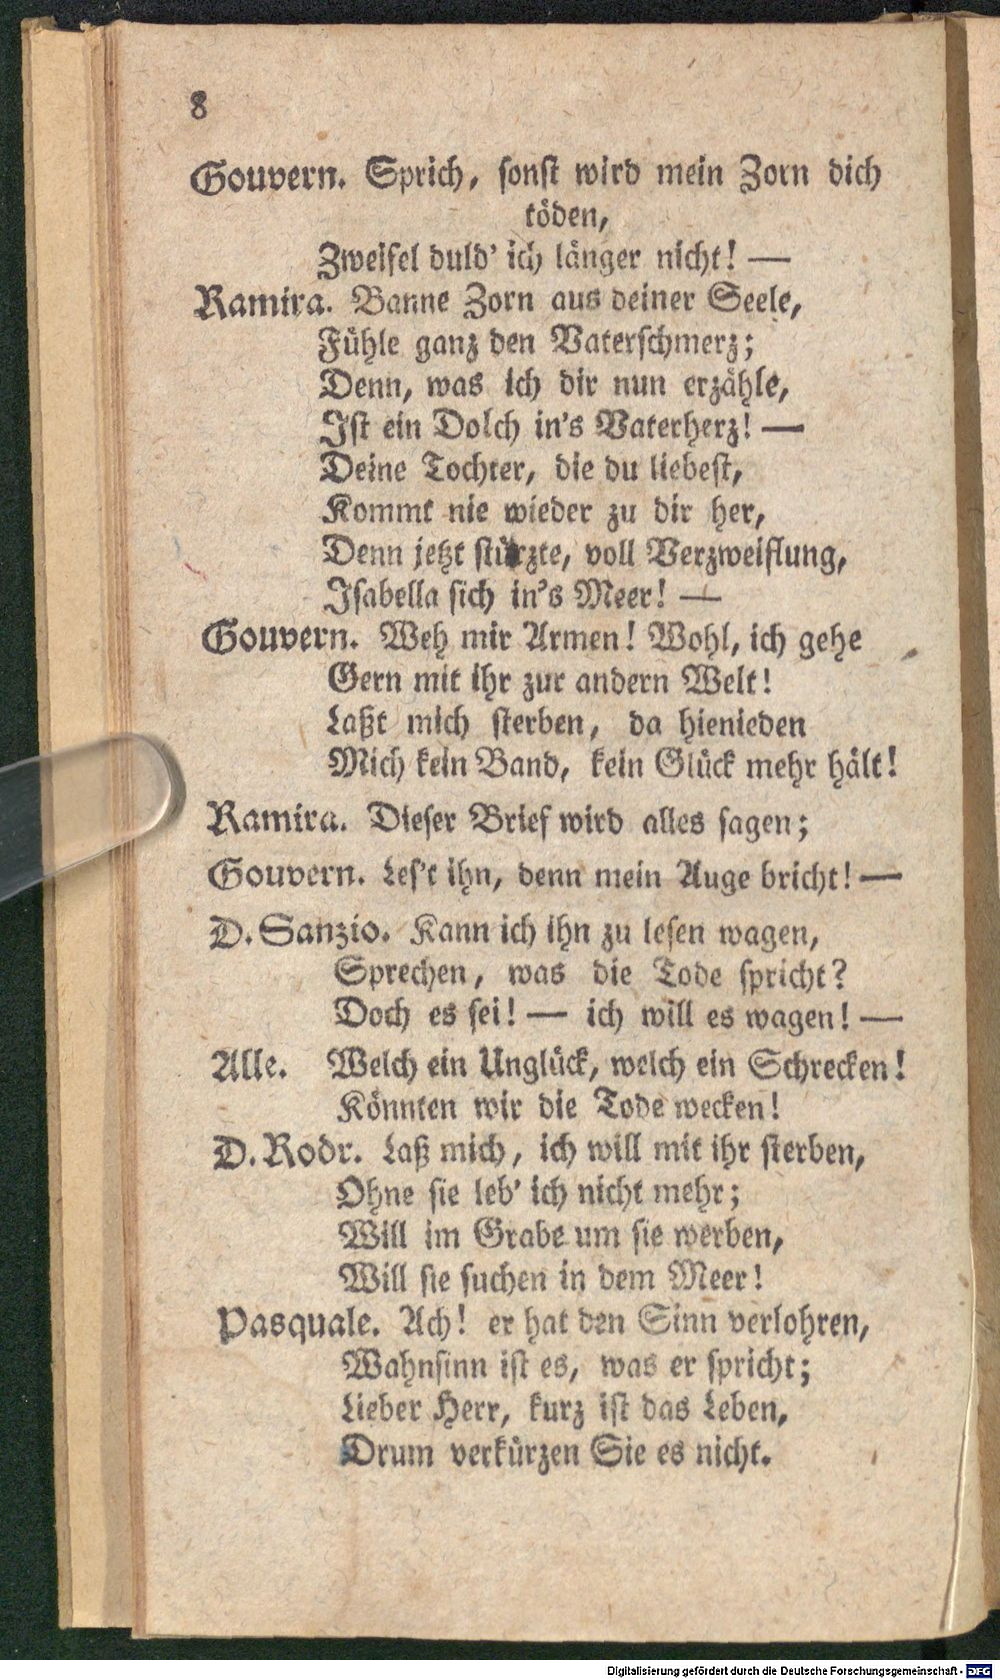 8
Gouvern. Sprich, sonst wird mein Zorn dich
töden,
Zweifel duld' ich länger nicht! —
Ramira. Banne Zorn aus deiner Seele,
Fühle ganz den Vaterschmerz;
Denn, was ich dir nun erzähle,
Ist ein Dolch in's Vaterherz! —
Deine Tochter, die du liebest,
Kommt nie wieder zu dir her,
Denn jetzt stürzte, voll Verzweiflung,
Isabella sich in's Meer! —
Gouvern. Weh mir Armen! Wohl, ich gehe
Gern mit ihr zur andern Welt!
Laßt mich sterben, da hienieden
Mich kein Band, kein Glück mehr hält!
Ramira. Dieser Brief wird alles sagen;
Gouvern. Les't ihn, denn mein Auge bricht! —
D. Sanzio. Kann ich ihn zu lesen wagen,
Sprechen, was die Tode spricht?
Doch es sei! — ich will es wagen! —
Alle. Welch ein Unglück, welch ein Schrecken!
Könnten wir die Tode wecken!
D. Rodr. Laß mich, ich will mit ihr sterben,
Ohne sie leb' ich nicht mehr;
Will im Grabe um sie werben,
Will sie suchen in dem Meer!
Pasquale. Ach! er hat den Sinn verlohren,
Wahnsinn ist es, was er spricht;
Lieber Herr, kurz ist das Leben,
Drum verkürzen Sie es nicht.
Digitalisierung gefördert durch die Deutsche Forschungsgemeinschaft - DFG